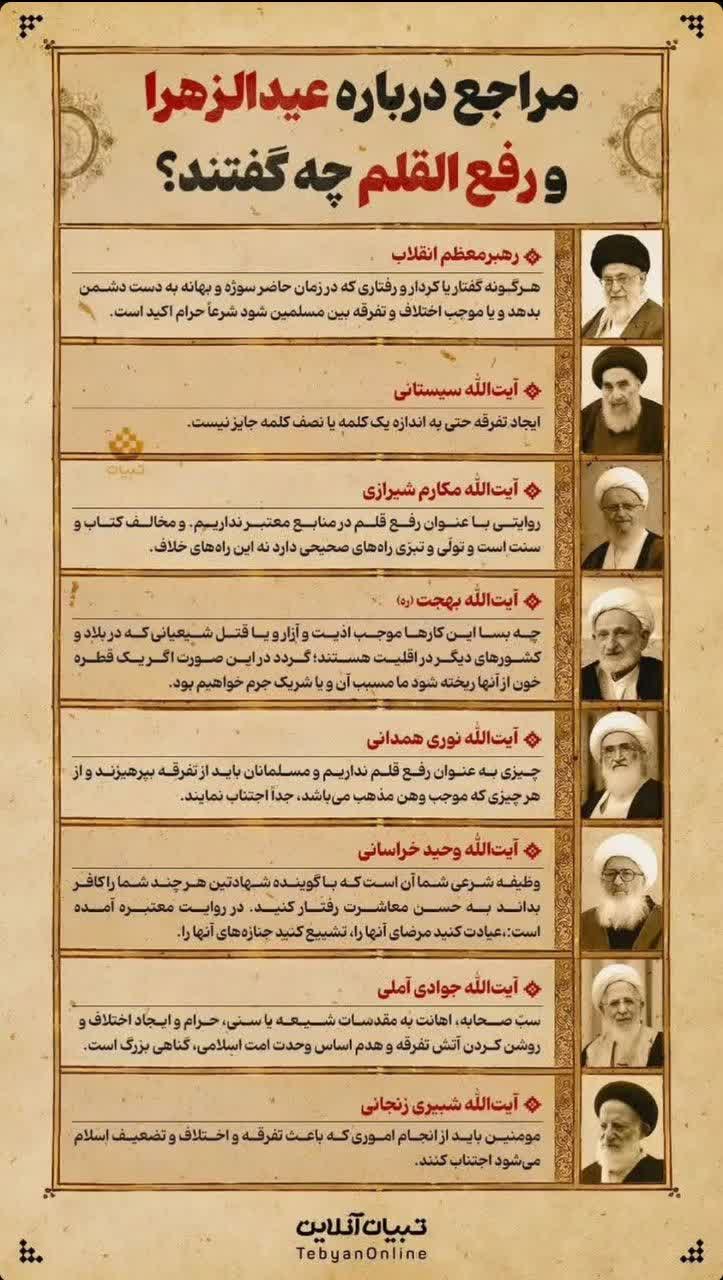 مراجع درباره عیدالزهرا
و رفع القلم چه گفتند؟
رهبرمعظم انقلاب
هرگونه گفتار یا کردار و رفتاری که در زمان حاضر سوژه و بهانه به دست دشمن
بدهد و یا موجب اختلاف و تفرقه بین مسلمین شود شرعاً حرام اکید است.
آیت‌الله سیستانی
ایجاد تفرقه حتی به اندازه یک کلمه یا نصف کلمه جایز نیست.
تبیان
آیت‌الله مکارم شیرازی
روایتی با عنوان رفع قلم در منابع معتبر نداریم. و مخالف کتاب و
سنت است و تولّی و تبرّی راه‌های صحیحی دارد نه این راه‌های خلاف.
آیت‌الله بهجت (ره)
چه بسا این کارها موجب اذیت و آزار و یا قتل شیعیانی که در بلاد و
کشورهای دیگر در اقلیت هستند؛ گردد در این صورت اگر یک قطره
خون از آنها ریخته شود ما مسبب آن و یا شریک جرم خواهیم بود.
آیت‌الله نوری همدانی
چیزی به عنوان رفع قلم نداریم و مسلمانان باید از تفرقه بپرهیزند و از
هر چیزی که موجب وهن مذهب می‌باشد، جداً اجتناب نمایند.
آیت‌الله وحید خراسانی
وظیفه شرعی شما آن است که با گوینده شهادتین هر چند شما را کافر
بداند به حسن معاشرت رفتار کنید. در روایت معتبره آمده
است:،عیادت کنید مرضای آنها را، تشییع کنید جنازه‌های آنها را.
آیت‌الله جوادی آملی
سبّ صحابه، اهانت به مقدسات شیعه یا سنی، حرام و ایجاد اختلاف و
روشن کردن آتش تفرقه و هدم اساس وحدت امت اسلامی، گناهی بزرگ است.
آیت‌الله شبیری زنجانی
مومنین باید از انجام اموری که باعث تفرقه و اختلاف و تضعیف اسلام
می‌شود اجتناب کنند.
تبیان‌آنلاین
TebyanOnline